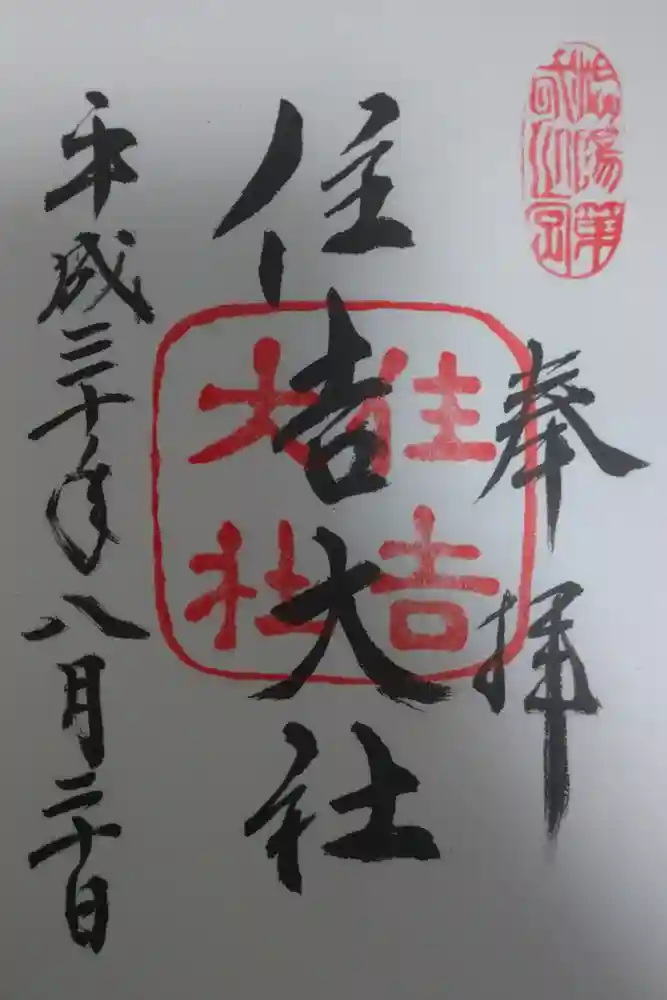 陽第
弌之宮
奉拝
住吉大社
住吉
大社
平成三十年八月二十日